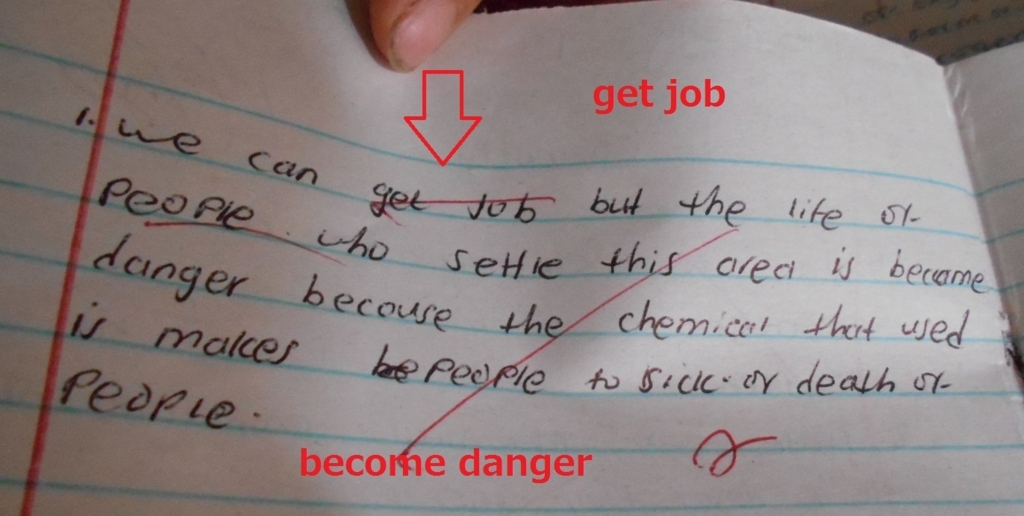 get job
1. we can get Job but the life of
people who settle this area is became
danger becouse the chemical that used
is makes be people to sick. or death of
people.
become danger